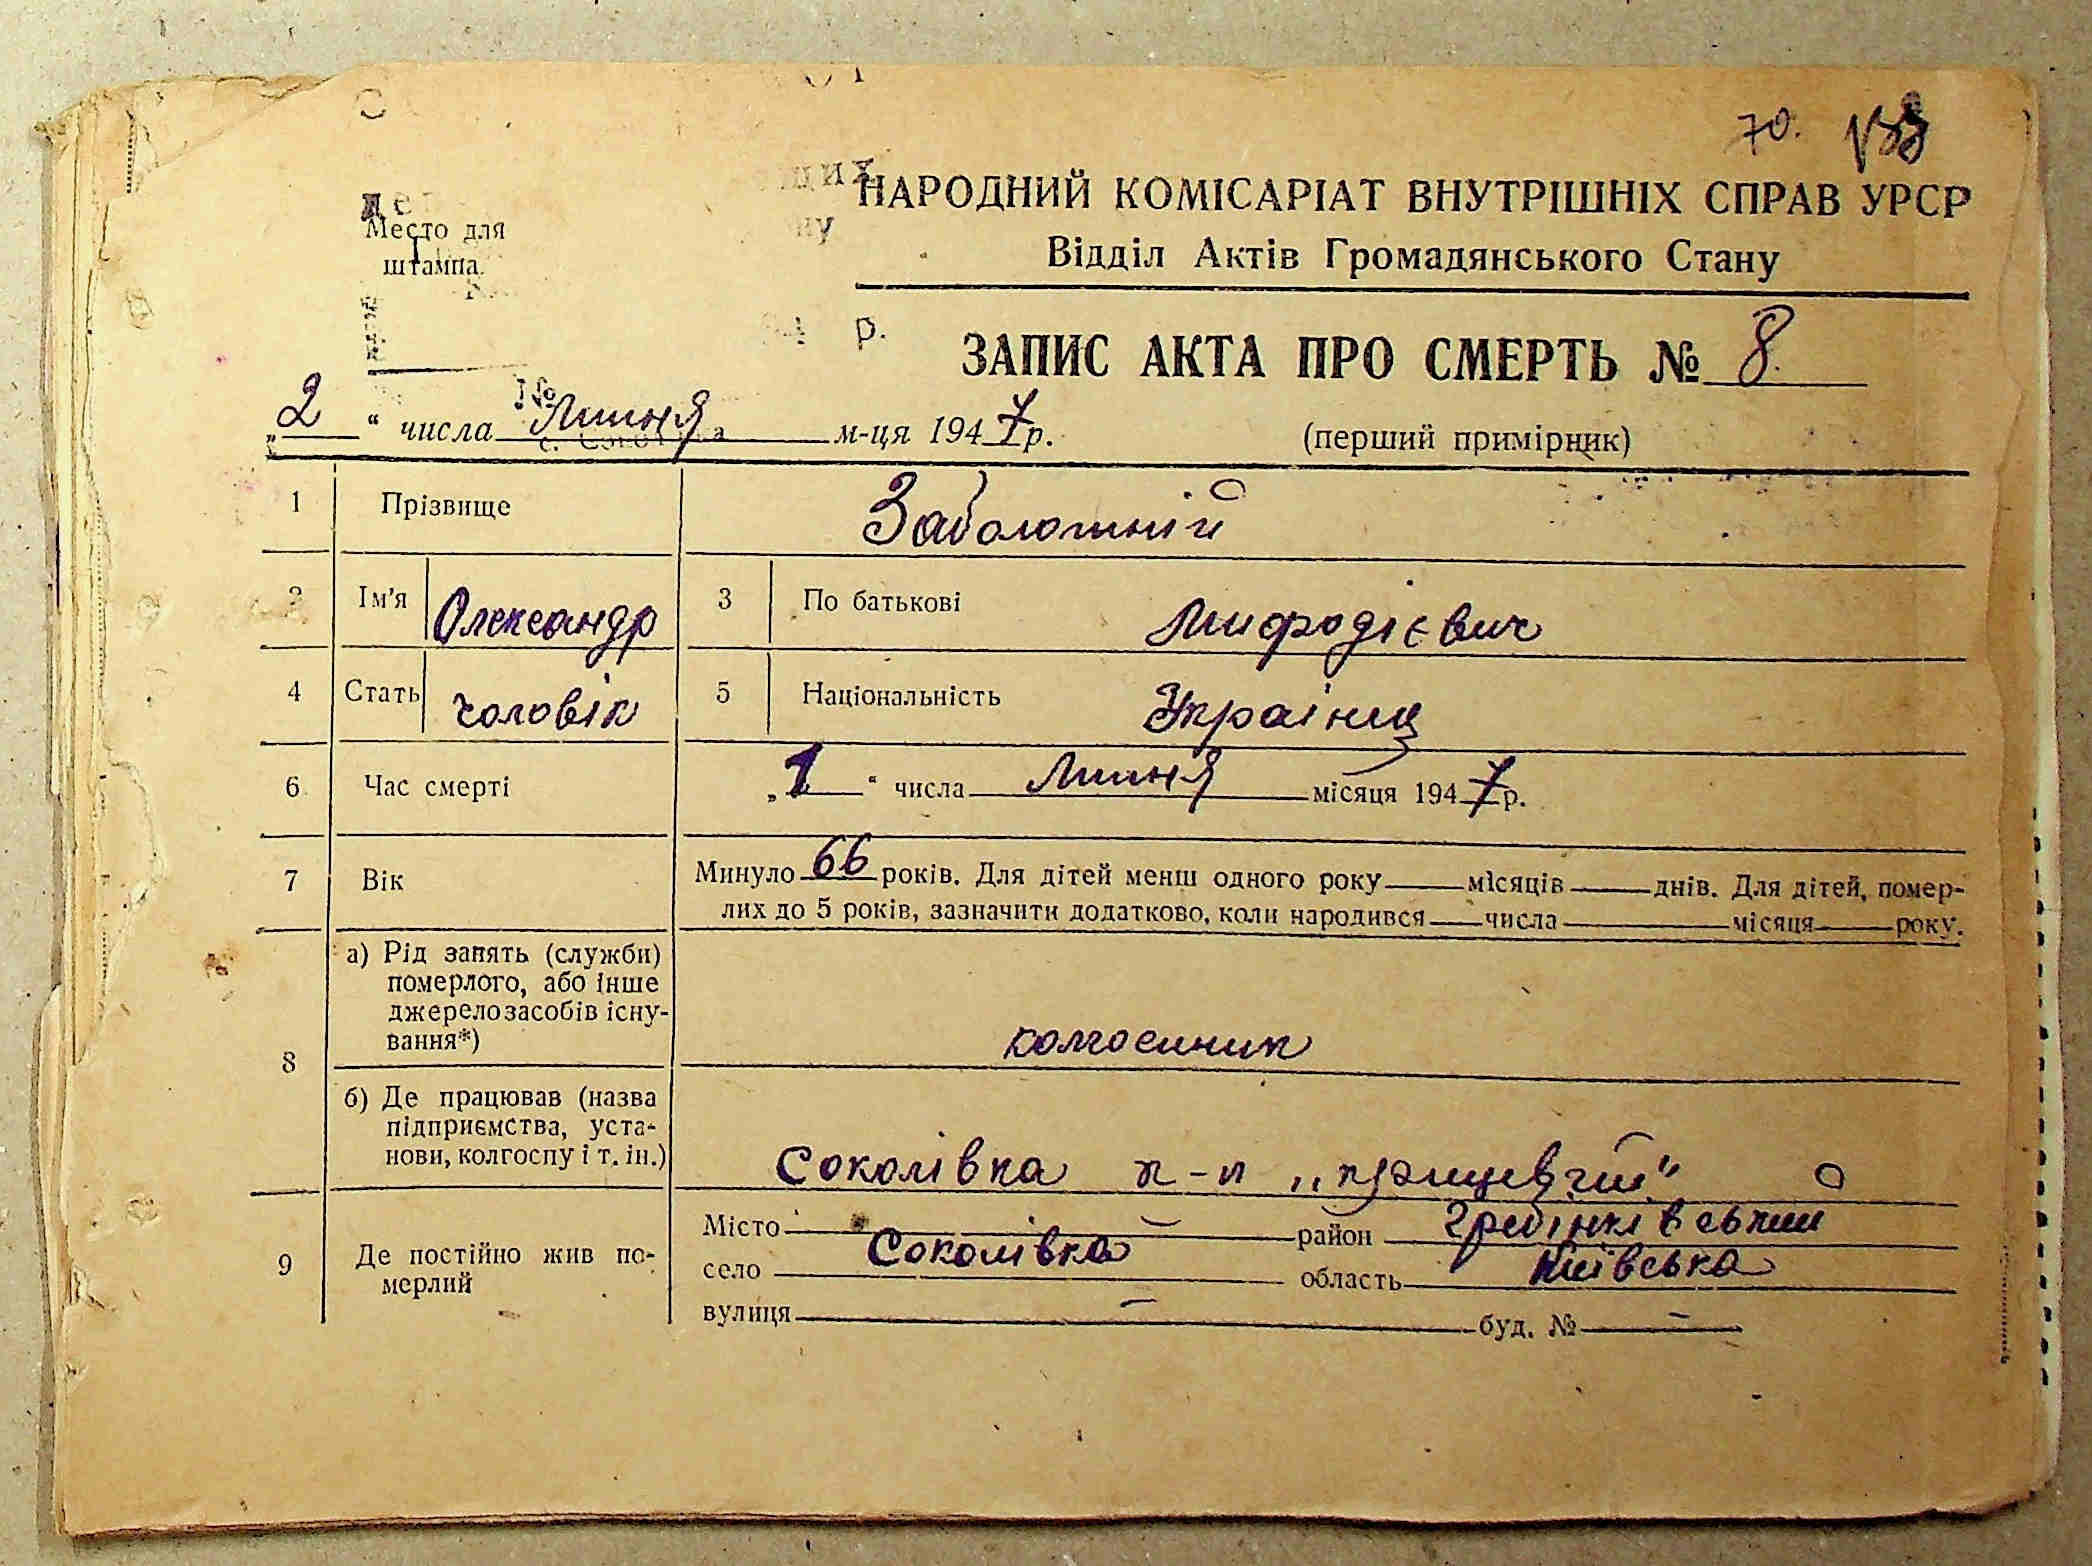 70. 138
НАРОДНИЙ КОМІСАРІАТ ВНУТРІШНІХ СПРАВ УРСР
Место для
штампа.
Відділ Актів Громадянського Стану
р.
ЗАПИС АКТА ПРО СМЕРТЬ № 8.
„2“ числа Липня м-ця 1947 р.
(перший примірник)
1 Прізвище Заболотній
2 Ім'я Олександр 3 По батькові Мифодієвич
4 Стать чоловік 5 Національність Українец
6 Час смерті „1“ числа Липня місяця 1947 р.
7 Вік Минуло 66 років. Для дітей менш одного року місяців днів. Для дітей, помер-
лих до 5 років, зазначити додатково, коли народився числа місяця року.
8 а) Рід занять (служби)
померлого, або інше
джерело засобів існу-
вання*) колгоспник
б) Де працював (назва
підприємства, уста-
нови, колгоспу і т. ін.) Соколівка
9 Де постійно жив по-
мерлий
Місто — район Гребінківський
село Соколівка область Київська
вулиця — буд. № —